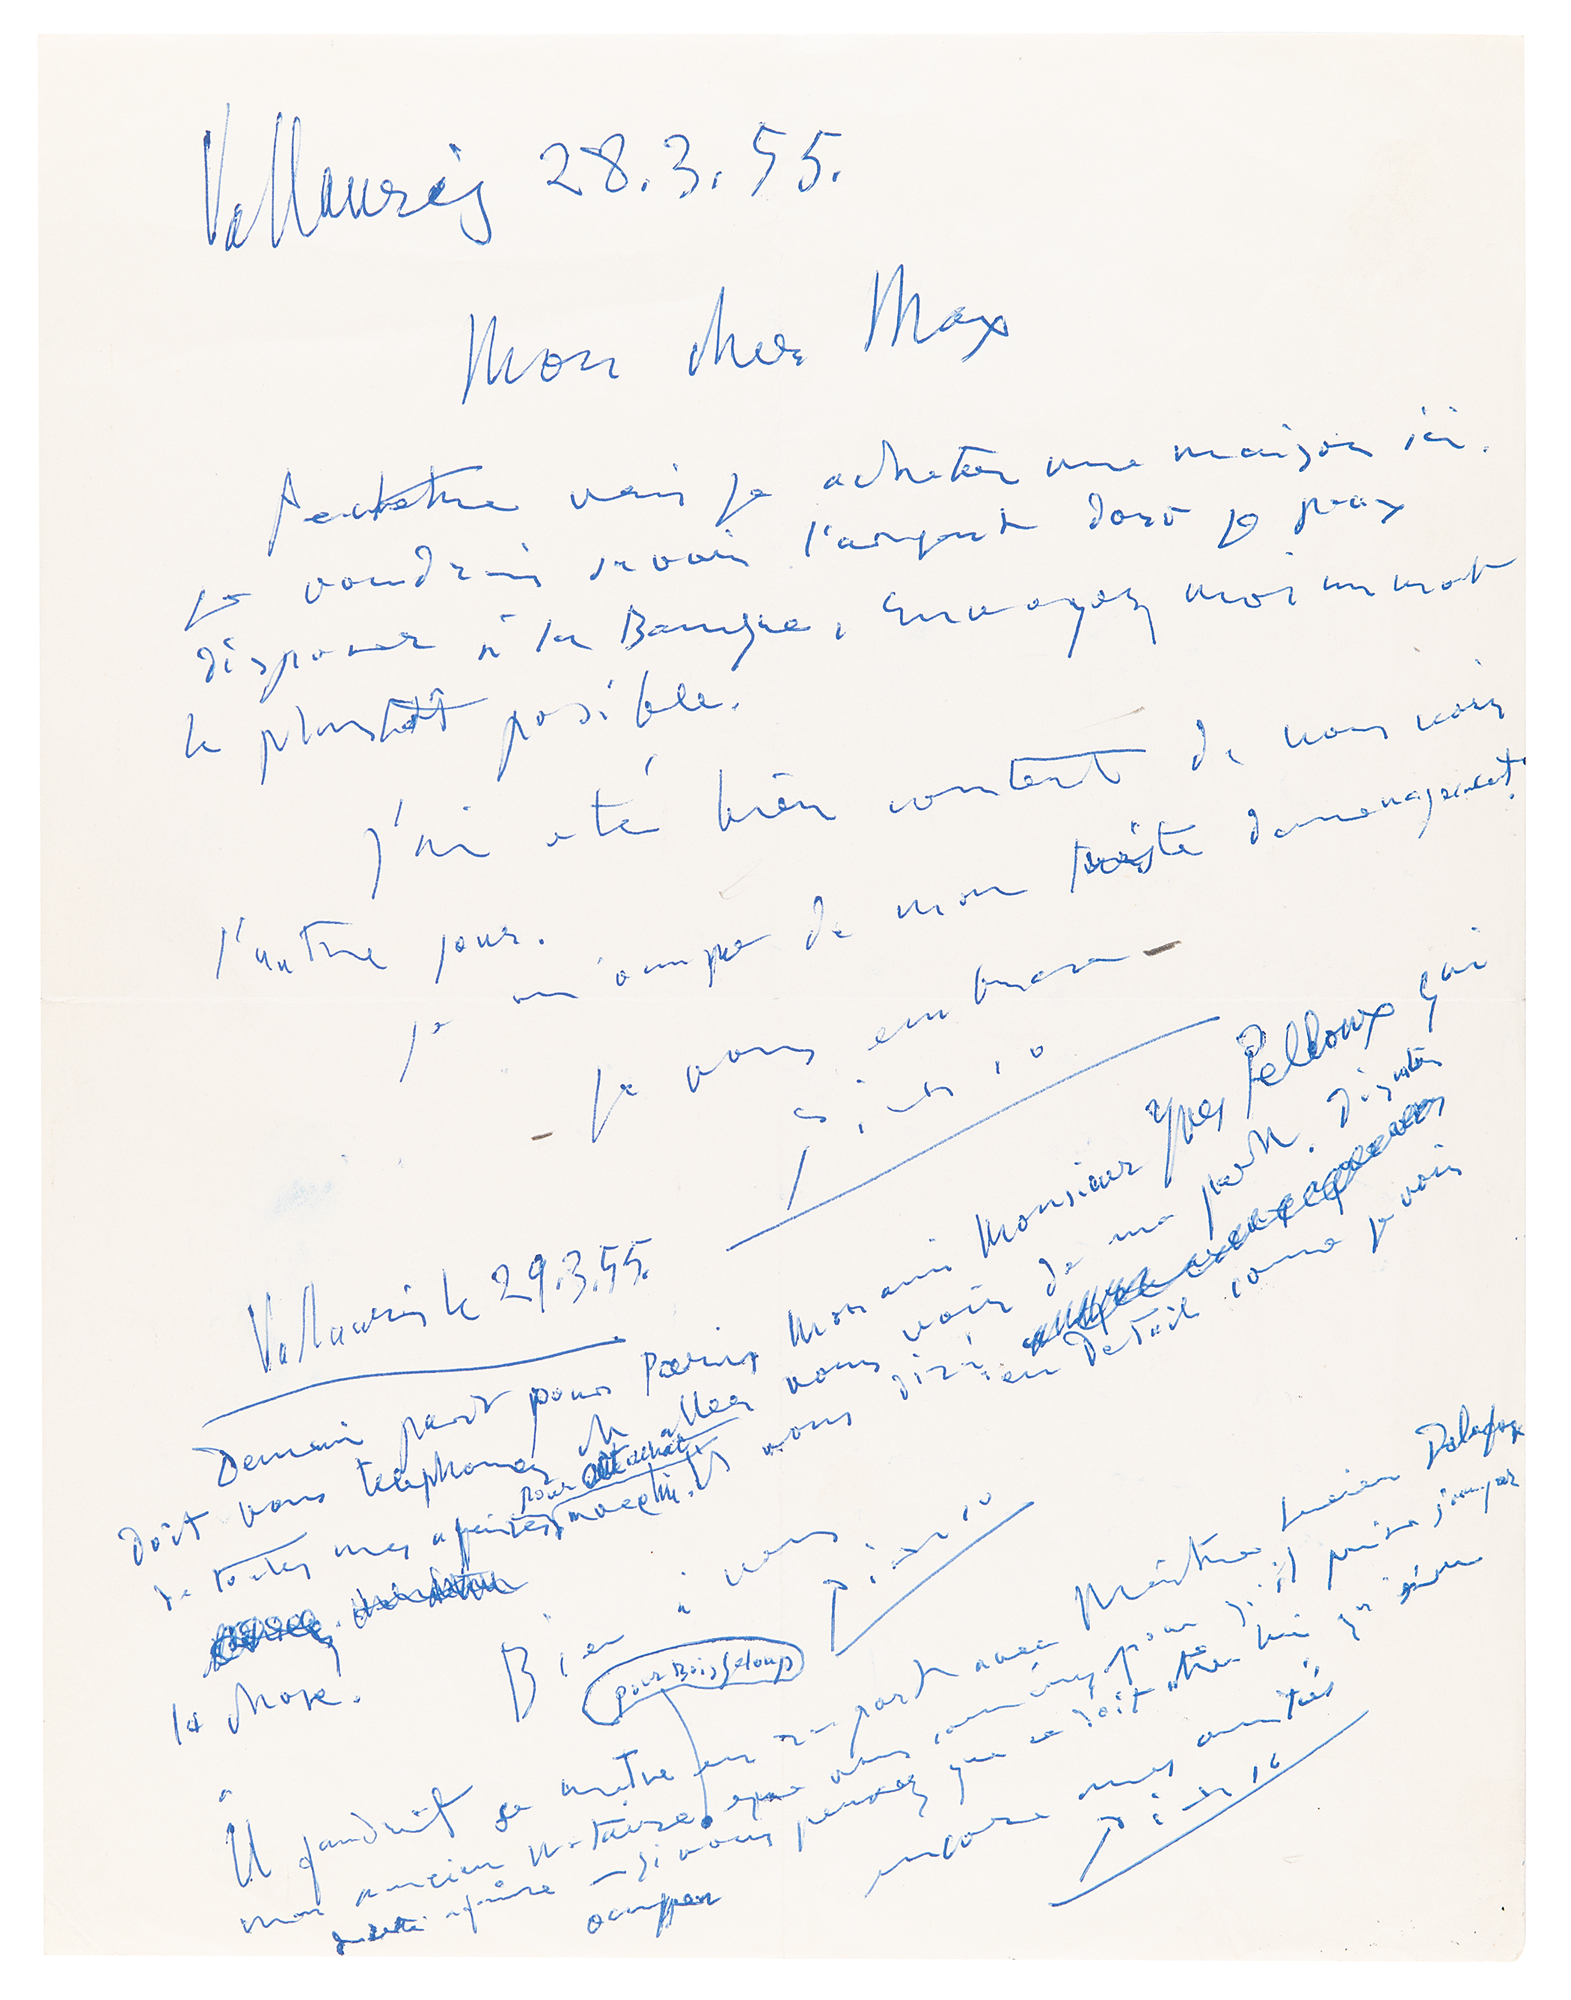 Vallauris 28.3.55.
Mon cher Max
Peutetre vais je acheter une maison ici.
je voudrais savoir l'argent dont je peux
disposer à la Banque, envoyez moi un mot
le plustôt posible.
J'ai eté bien content de vous voir
l'autre jour.
je m'ocupe de mon triste demenagement.
je vous embrasse
Picasso
Vallauris le 29.3.55.
Demain part pour Paris Mon ami Monsieur Yves Pelloux qui
doit vous telephoner et aller vous voir de ma part.
de toutes mes afaires
pour
vous dira en detail comme je vois
la chose.
Bien à vous
Picasso
pour Boisgeloup
Il faudrait se metre en raport avec Maitre Lucien
mon ancien Notaire que vous pour
cette afaire – si vous pensez que ce doit etre lui qui
ocuper
encore mes amitiés
Picasso